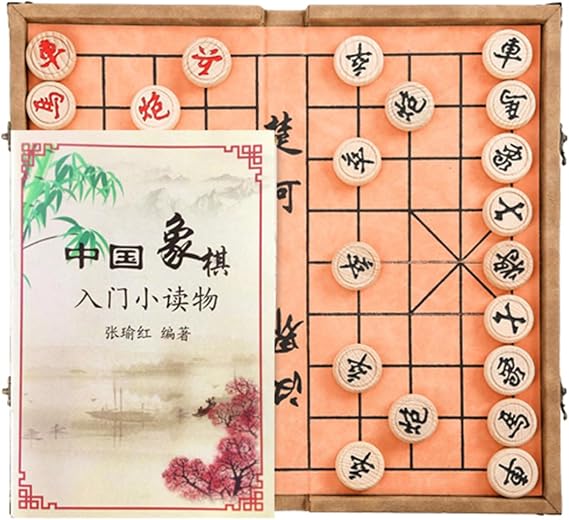 中国象棋
入门小读物
张瑜红 编著
楚河
汉界
車
馬
炮
兵
卒
卒
卒
卒
卒
砲
砲
車
馬
象
士
將
士
象
馬
車